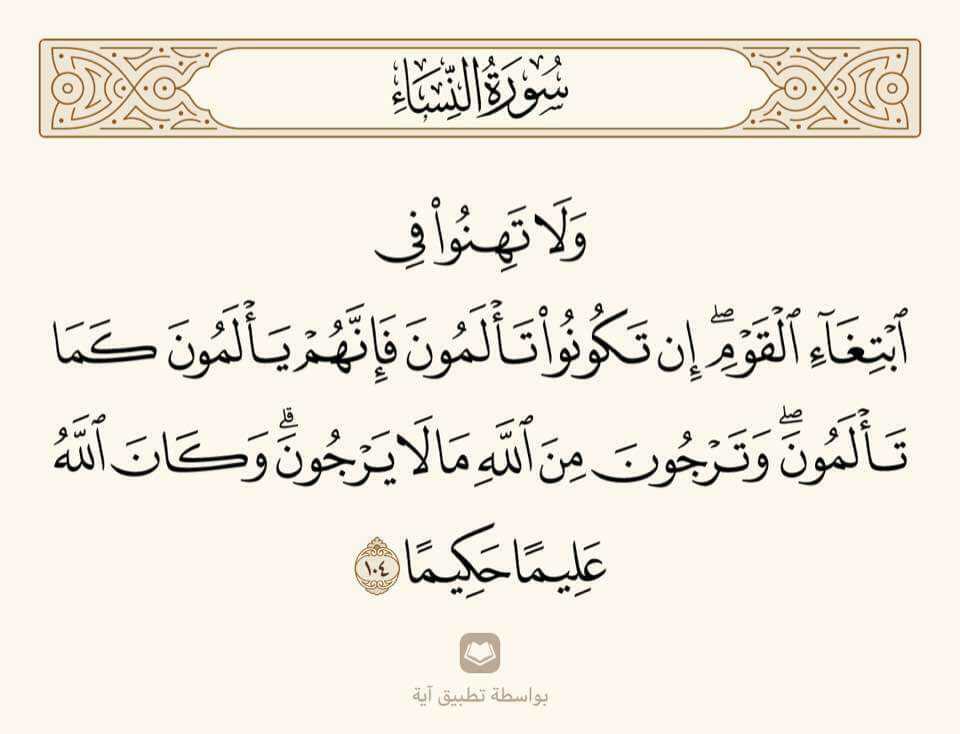 سُورَةُ النِّسَاءِ
وَلَا تَهِنُوا۟ فِى
ٱبْتِغَآءِ ٱلْقَوْمِ ۖ إِن تَكُونُوا۟ تَأْلَمُونَ فَإِنَّهُمْ يَأْلَمُونَ كَمَا
تَأْلَمُونَ ۖ وَتَرْجُونَ مِنَ ٱللَّهِ مَا لَا يَرْجُونَ ۗ وَكَانَ ٱللَّهُ
عَلِيمًا حَكِيمًا ١٠٤
بواسطة تطبيق آية